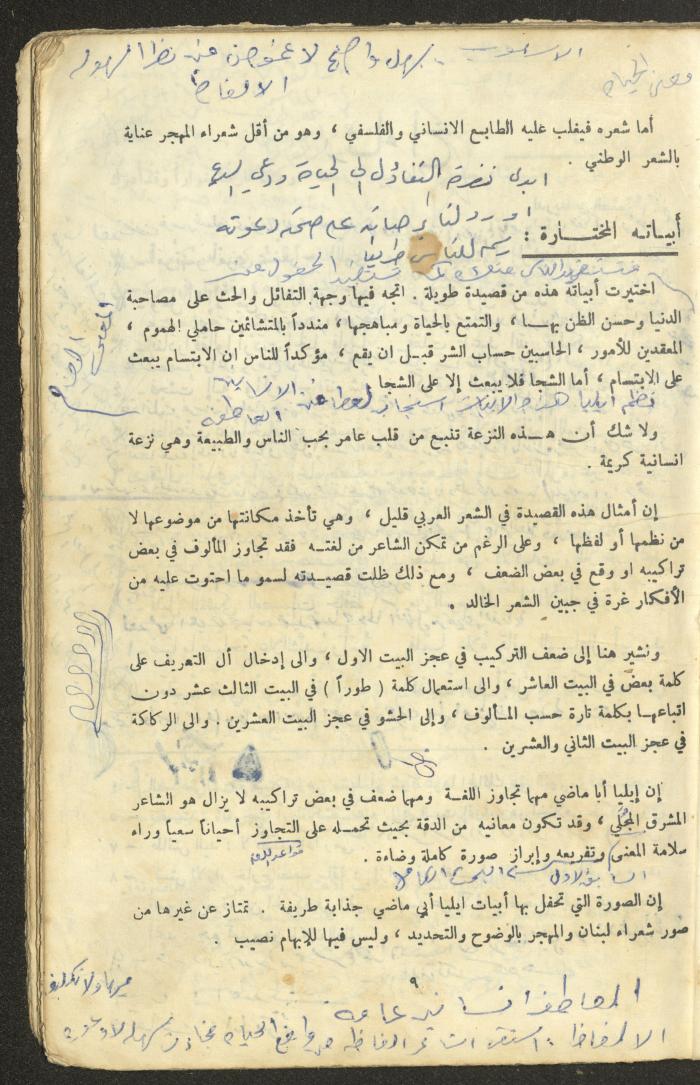 الاسلوب : سهل واضح لا غموض فيه نظرا لسهولة
معنى الحياة
الالفاظ
أما شعره فيغلب عليه الطابع الانساني والفلسفي ، وهو من أقل شعراء المهجر عناية
بالشعر الوطني .
ابدى نظرة التفاؤل الى الحياة ودعى
اورد لنا على صحة دعوته
أبياته المختارة :
رسم للناس طريقا
اختيرت أبياته هذه من قصيدة طويلة . اتجه فيها وجهة التفائل والحث على مصاحبة
الدنيا وحسن الظن بهـا ، والتمتع بالحياة ومباهجها ، مندداً بالمتشائمين حاملي الهموم ،
المعقدين للأمور ، الحاسبين حساب الشر قبـل ان يقع ، مؤكداً للناس ان الابتسام يبعث
على الابتسام ، أما الشجا فلا يبعث إلا على الشجا
نظم ايليا هذه الابيات
العاطفة
ولا شك أن هـذه النزعة تنبـع من قلب عامر بحب الناس والطبيعة وهي نزعة
انسانية كريمة .
إن أمثال هذه القصيدة في الشعر العربي قليل ، وهي تأخذ مكانتها من موضوعها لا
من نظمها أو لفظها ، وعلى الرغم من تمكن الشاعر من لغتـه فقد تجاوز المألوف في بعض
تراكيبه او وقع في بعض الضعف ، ومع ذلك ظلت قصيـدته لسمو ما احتوت عليه من
الأفكار غرة في جبين الشعر الخالد .
ونشير هنا إلى ضعف التركيب في عجز البيت الاول ، والى إدخال أل التعريف على
كلمة بعض في البيت العاشر ، والى استعمال كلمة ( طوراً ) في البيت الثالث عشر دون
اتباعهـا بكلمة تارة حسب المـألوف ، وإلى الحشو في عجز البيت العشرين . والى الركاكة
في عجز البيت الثاني والعشرين .
إن إيليا أبا ماضي مهما تجاوز اللغـة ومهما ضعف في بعض تراكيبه لا يزال هو الشاعر
المشرق المجُلّي ، وقد تكون معانيه من الدقة بحيث تحمـله على التجاوز أحياناً سعياً وراء
سلامة المعنى وتفريعه وإبراز صورة كاملة وضاءة .
قواعد اللغة
إن الصورة التي تحفل بها أبيات ايليا أبي ماضي جذابة طريفة . تمتاز عن غيرها من
صور شعراء لبنان والمهجر بالوضوح والتحديد ، وليس فيها للإبهام نصيب .
٩
العاطفة انسانية عامة
الالفاظ :